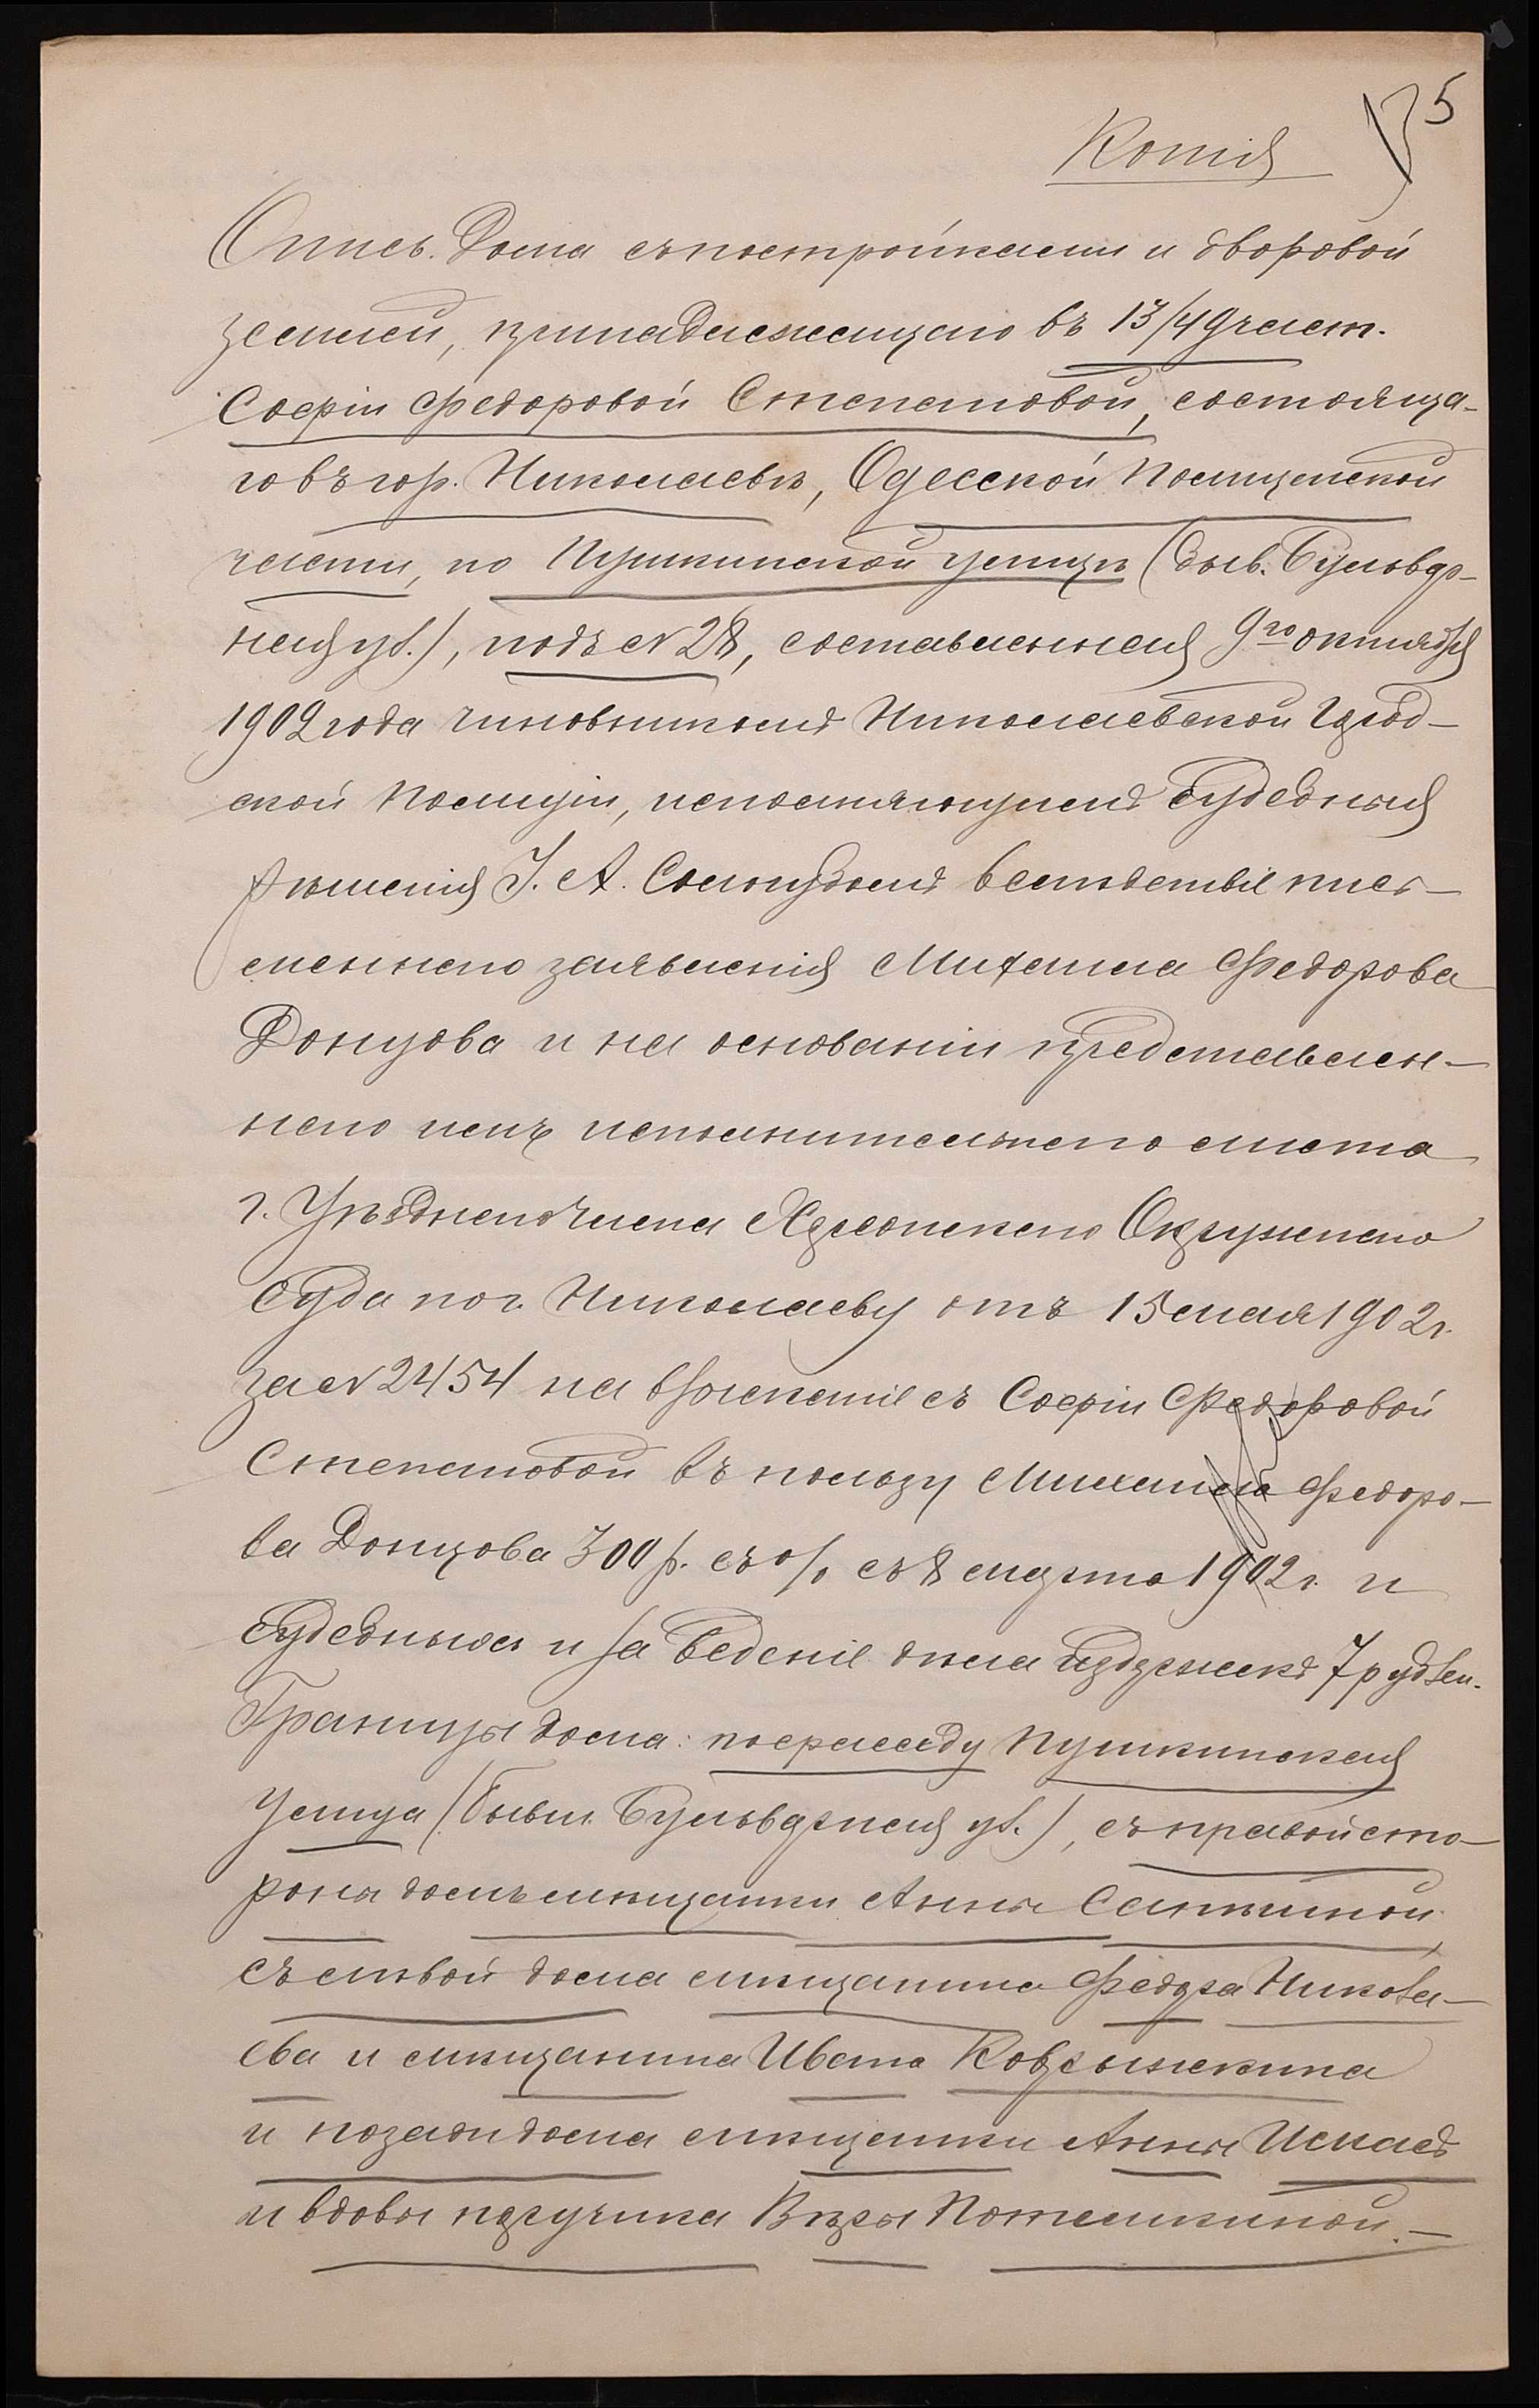 5
Копія
Опись. Дома съ постройками и дворовой
землей, принадлежащаго въ 13/49 част.
Софіи Федоровой Степановой, состояща-
го въ гор. Николаевѣ, Одесской Полицейской
части, по Пушкинской улицѣ (быв. Бульвар-
ная ул.), подъ № 28, составленная 9го октября
1902 года чиновникомъ Николаевской Город-
ской Полиціи, исполняющимъ судебныя
рѣшенія I. А. вслѣдствіе пись-
меннаго заявленія Михаила Федорова
Донцова и на основаніи представлен-
наго имъ исполнительнаго листа
г. Уѣзднаго Члена Херсонскаго Окружнаго
Суда по г. Николаеву отъ 15 мая 1902 г.
за № 2454 на взысканіе съ Софіи Федоровой
Степановой въ пользу Михаила Федоро-
ва Донцова 300 р. съ % съ 8 марта 1902 г. и
судебныхъ и за веденіе дѣла издержекъ 7 рублей.
Границы дома: по фасаду Пушкинская
Улица (бывш. Бульварная ул.), съ правой сто-
роны домъ мѣщанки Анны
съ лѣвой дома мѣщанина Федора Никола-
ева и мѣщанина Ивана Коврыжкина
и позади дома мѣщанки Анны
и вдовы поручика Вѣры Потемкиной.-